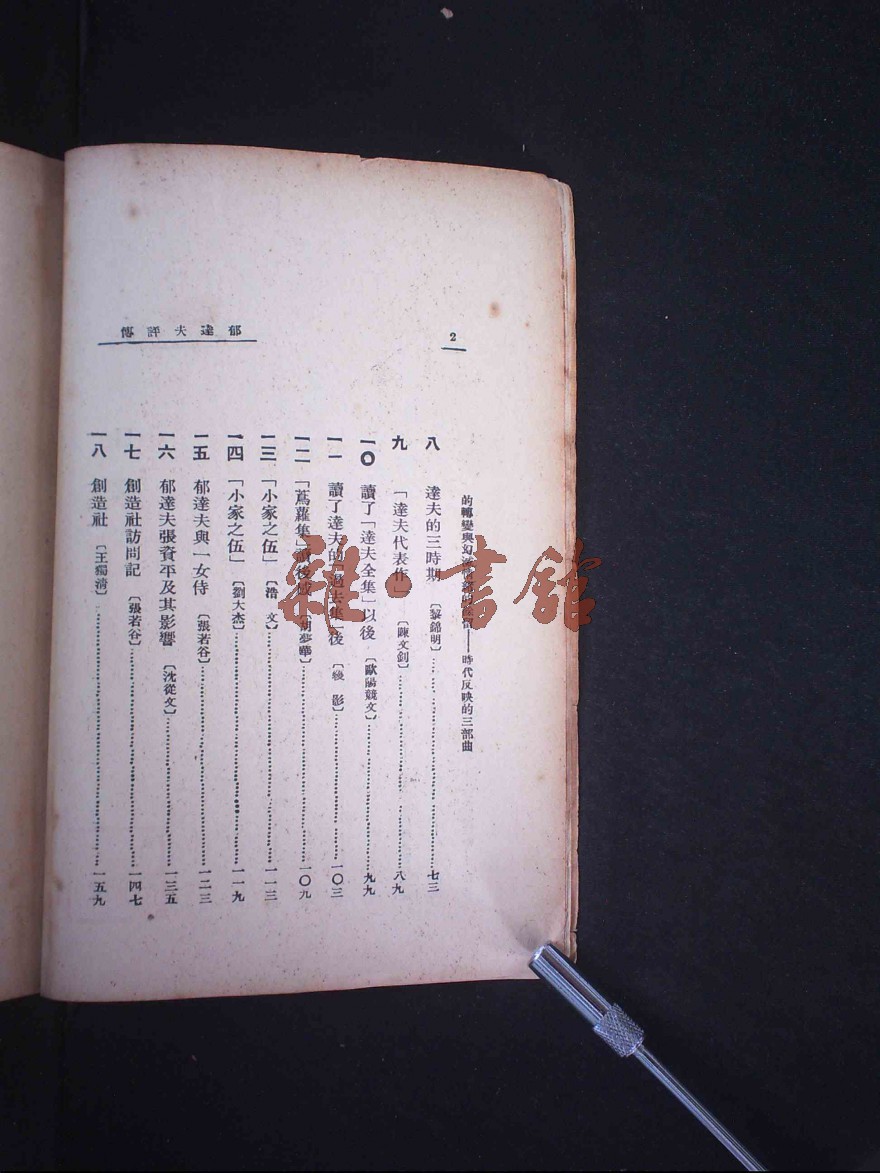 2
郁達夫評傳
的轉變與幻滅 時代反映的三部曲
八 達夫的三時期〔黎錦明〕 七三
九 「達夫代表作」〔陳文釗〕 八九
一〇 讀了「達夫全集」以後〔歐陽競文〕 九九
一一 讀了達夫的「過去集」後〔 影〕 一〇三
一二 「蔦蘿集」讀後 〔胡夢華〕 一〇九
一三 「小家之伍」〔浩 文〕 一一三
一四 「小家之伍」〔劉大杰〕 一一九
一五 郁達夫與一女侍〔張若谷〕 一二三
一六 郁達夫張資平及其影響〔沈從文〕 一三五
一七 創造社訪問記〔張若谷〕 一四七
一八 創造社〔王獨清〕 一五九
雜·書館